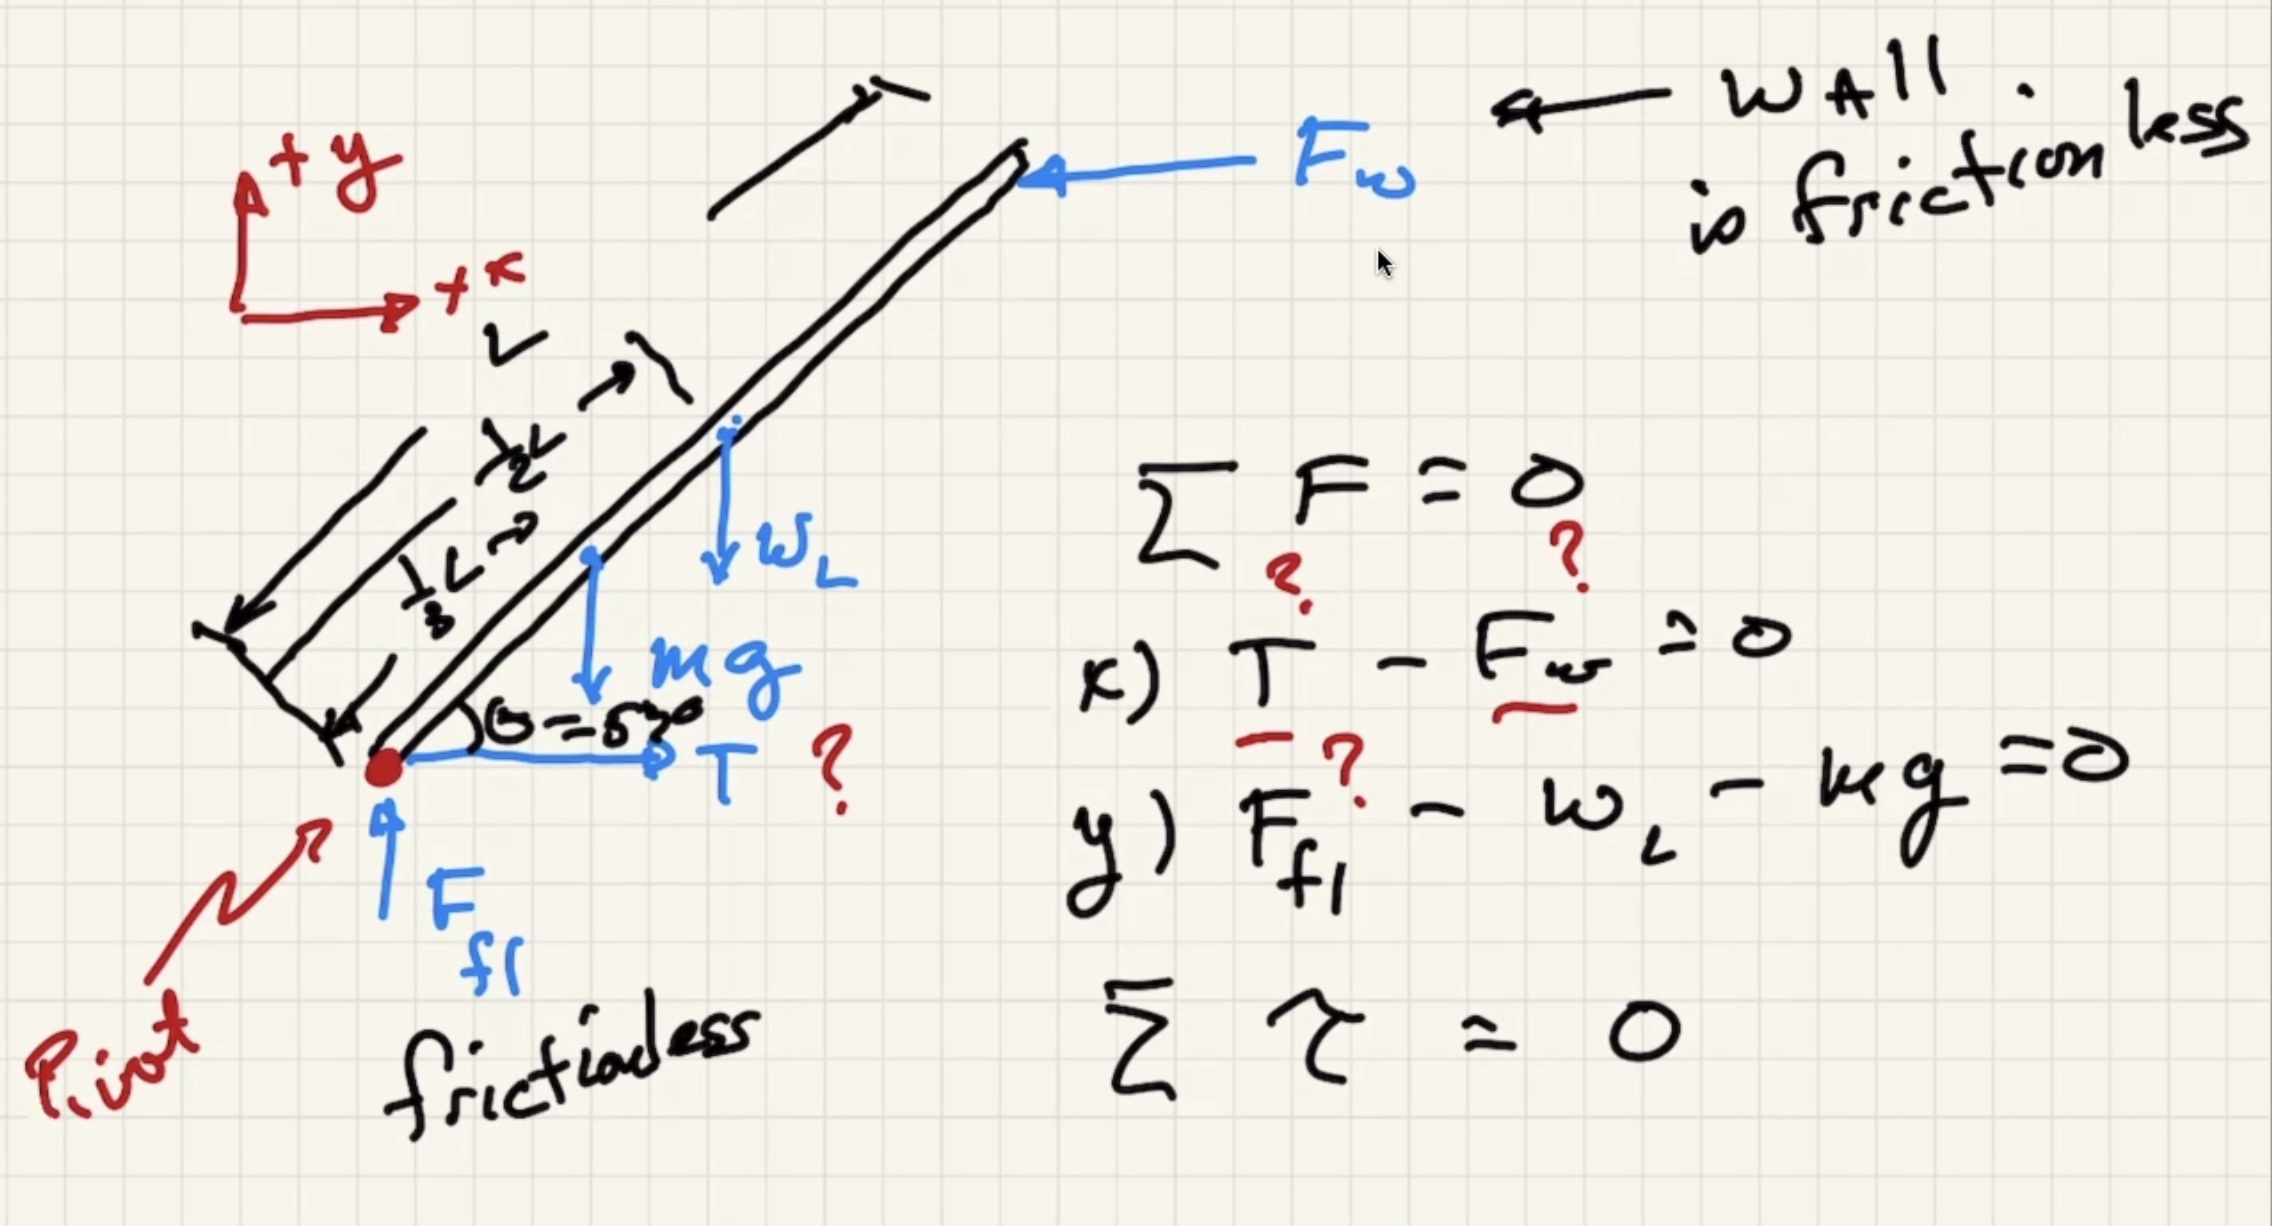 +y
+x
L
1/2 L
1/3 L
F_w
WAll
is frictionless
W_L
mg
θ = 53°
T ?
Pivot
F_fl
frictionless
Σ F = 0
? ?
x) T - F_w = 0
?
y) F_fl - W_L - mg = 0
Σ τ = 0